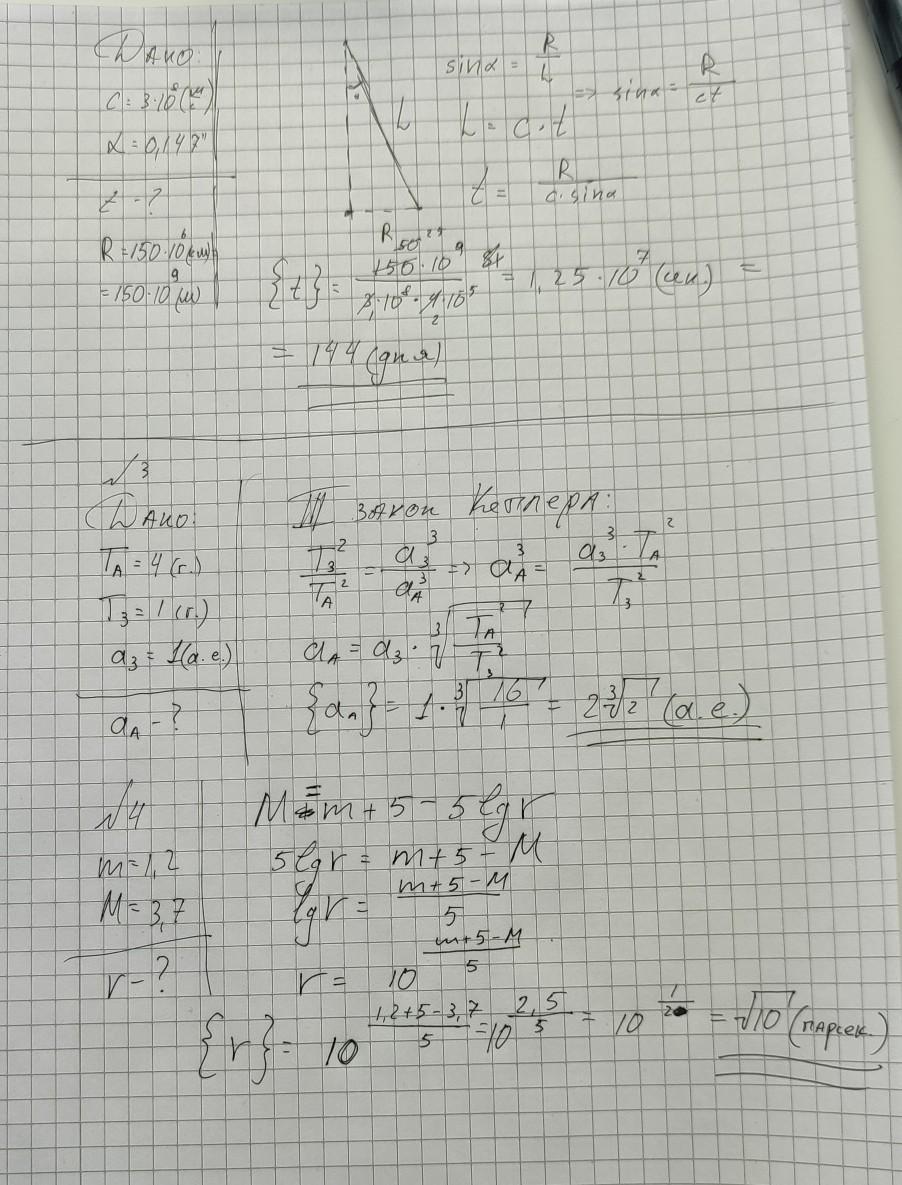 Дано:
c = 3·10⁸ (м/с)
α = 0,147"
t - ?
R = 150·10⁶ (км)
= 150·10⁹ (м)
sinα = R/L
L = c·t
=> sinα = R/ct
t = R/(c·sinα)
L
R
{t} = 150·10⁹/(3·10⁸·4·10⁻⁵) = 1,25·10⁷ (сек.) =
= 144 (дня)
√3
Дано:
T_A = 4 (г.)
T_З = 1 (г.)
a_З = 1 (а.е.)
a_A - ?
III закон Кеплера:
T_З²/T_A² = a_З³/a_A³ => a_A³ = a_З³·T_A²/T_З²
a_A = a_З · ∛(T_A²/T_З²)
{a_A} = 1·∛(16/1) = 2∛2 (а.е.)
√4
m = 1,2
M = 3,7
r - ?
M = m + 5 - 5 lg r
5 lg r = m + 5 - M
lg r = (m+5-M)/5
r = 10^((m+5-M)/5)
{r} = 10^((1,2+5-3,7)/5) = 10^(2,5/5) = 10^(1/2) = √10 (парсек.)